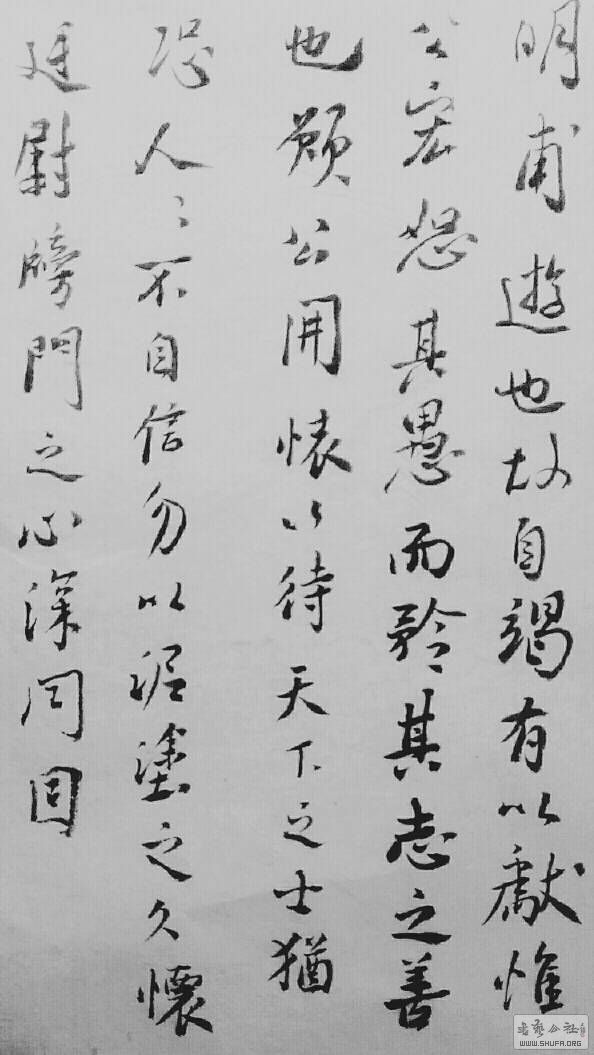 明甫遊也故自竭有以獻惟
公宏恕其愚而矜其志之善
也願公開懷以待天下之士猶
恐人々不自信勿以泥塗之久懷
廷尉牓門之心深閉固
书艺公社
WWW.SHUFA.ORG